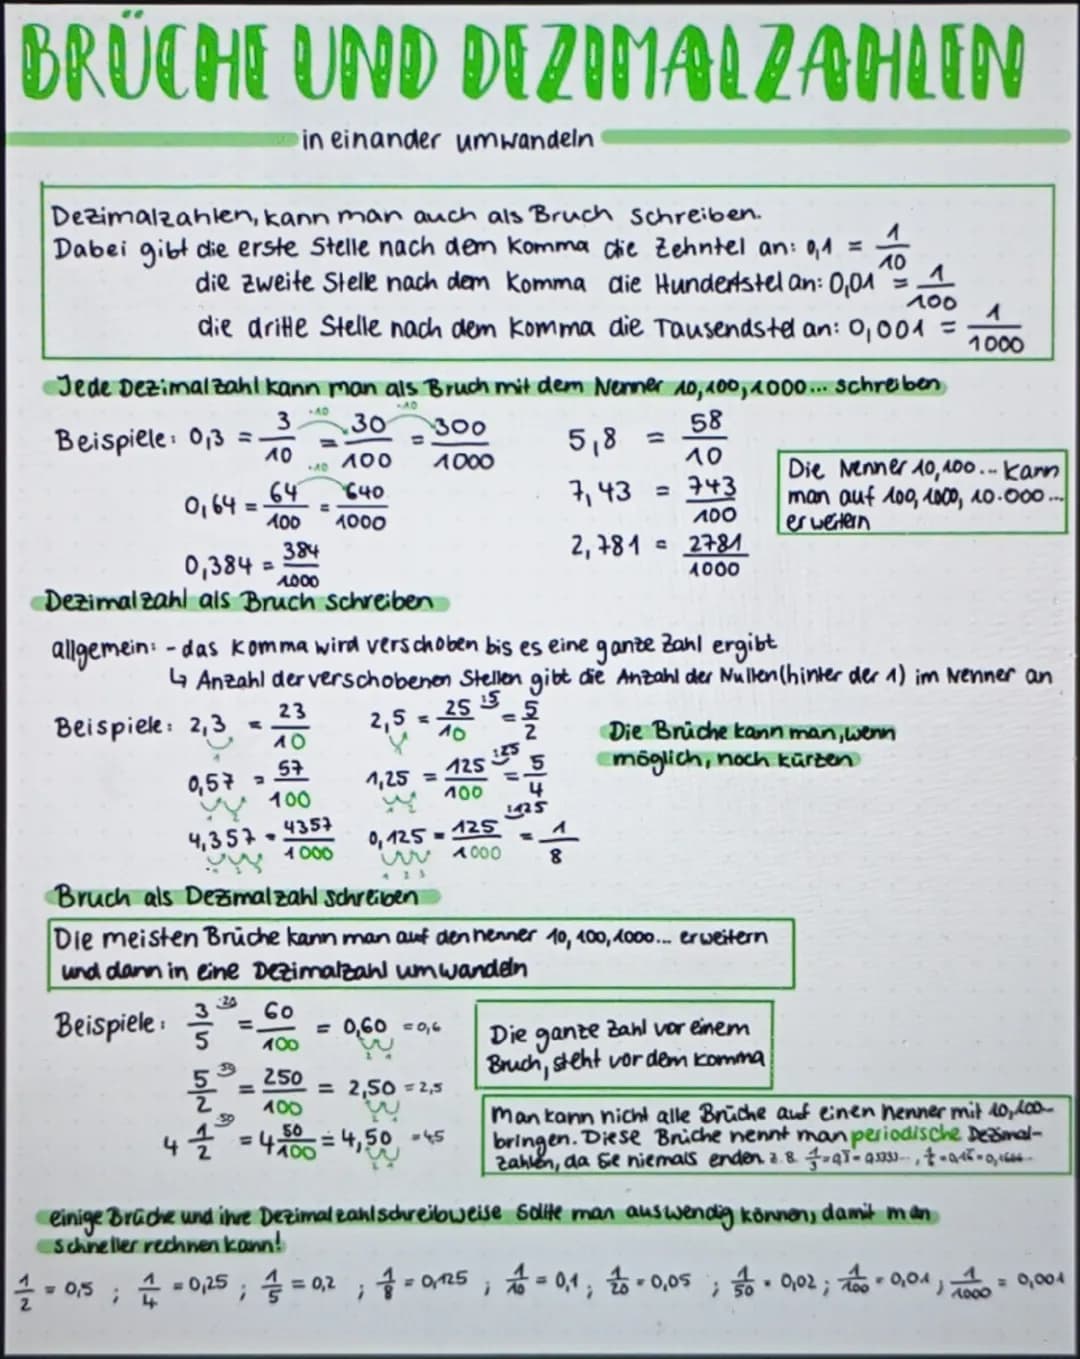 BRÜCHE UND DEZIMALZAHLEN
in einander umwandeln
Dezimalzahlen, kann man auch als Bruch schreiben.
Dabei gibt die erste Stelle nach dem Komma die Zehntel an: 0,1 = 1/10
die zweite Stelle nach dem Komma die Hundertstel an: 0,01 = 1/100
die dritte Stelle nach dem Komma die Tausendstel an: 0,001 = 1/1000
Jede Dezimalzahl kann man als Bruch mit dem Nenner 10,100,1000... schreiben
Beispiele: 0,3 = 3/10 ·10 ·10 = 30/100 ·10 = 300/1000
0,64 = 64/100 = 640/1000
0,384 = 384/1000
5,8 = 58/10
7,43 = 743/100
2,781 = 2781/1000
Die Nenner 10,100... kann
man auf 100, 1000, 10.000...
erweitern
Dezimalzahl als Bruch schreiben
allgemein: - das Komma wird verschoben bis es eine ganze Zahl ergibt
↳ Anzahl der verschobenen Stellen gibt die Anzahl der Nullen (hinter der 1) im Nenner an
Beispiele: 2,3 = 23/10
0,57 = 57/100
4,357 = 4357/1000
2,5 = 25/10 :5 = 5/2
1,25 = 125/100 :25 = 5/4
0,125 = 125/1000 :125 = 1/8
1 2 3
Die Brüche kann man, wenn
möglich, noch kürzen
Bruch als Dezimalzahl schreiben
Die meisten Brüche kann man auf den nenner 10, 100, 1000... erweitern
und dann in eine Dezimalzahl umwandeln
Beispiele: 3/5 = 60/100 = 0,60 = 0,6
5/2 = 250/100 = 2,50 = 2,5
4 1/2 = 4 50/100 = 4,50 = 4,5
Die ganze Zahl vor einem
Bruch, steht vor dem Komma
Man kann nicht alle Brüche auf einen nenner mit 10, 100...
bringen. Diese Brüche nennt man periodische Dezimal-
zahlen, da sie niemals enden. z. B. 1/3
einige Brüche und ihre Dezimalzahlschreibweise sollte man auswendig können, damit man
schneller rechnen kann!
1/2 = 0,5 ; 1/4 = 0,25 ; 1/5 = 0,2 ; 1/8 = 0,125 ; 1/10 = 0,1 ; 1/20 = 0,05 ; 1/50 = 0,02 ; 1/100 = 0,01 ; 1/1000 = 0,001